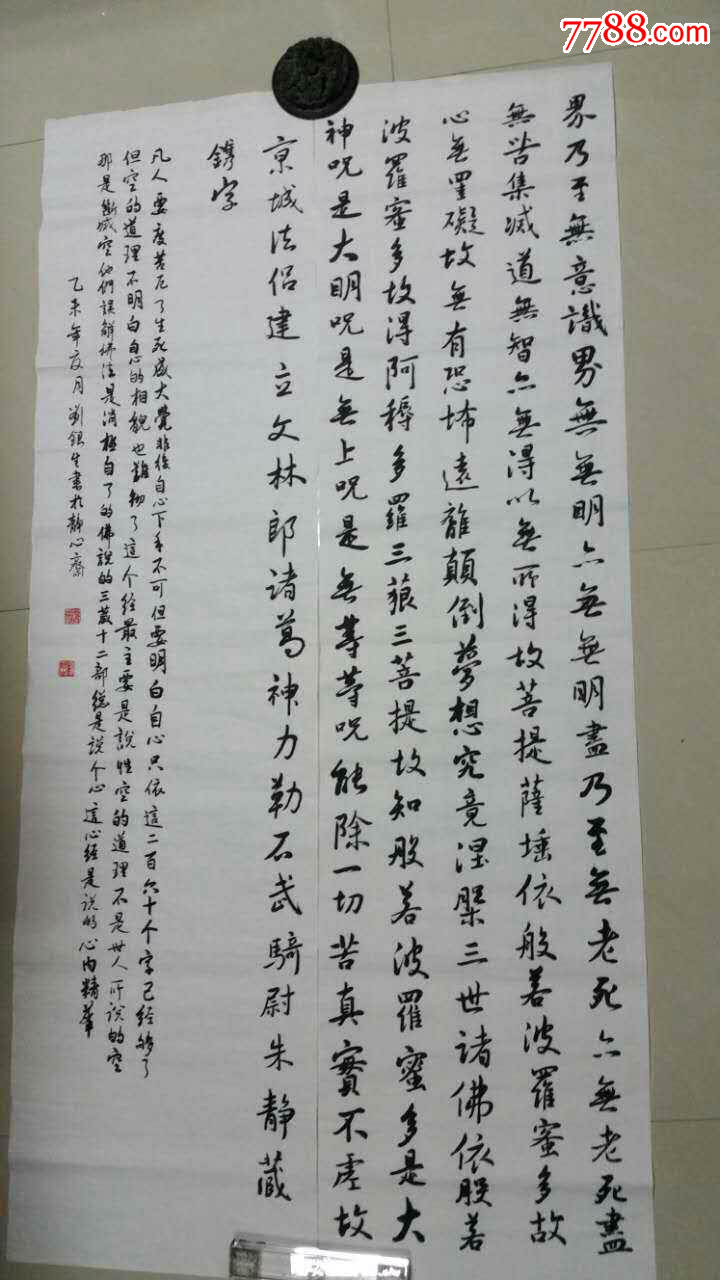 7788.com
界乃至無意識界無無明亦無無明盡乃至無老死亦無老死盡
無苦集滅道無智亦無得以無所得故菩提薩埵依般若波羅蜜多故
心無罣礙故無有恐怖遠離顛倒夢想究竟涅槃三世諸佛依般若
波羅蜜多故得阿耨多羅三藐三菩提故知般若波羅蜜多是大
神咒是大明咒是無上咒是無等等咒能除一切苦真實不虛故
京城法侶建立文林郎諸葛神力勒石武騎尉朱静藏
鐫字
凡人要度苦厄了生死成大覺非從自心下手不可但要明白自心只依這二百六十个字已經夠了
但空的道理不明白自心的相貌也難夠了這个經最主要是說性空的道理不是世人所說的空
那是斷滅空他們誤解佛法是消極自了的佛說的三藏十二部總是說个心這心經是說的心内精華
乙未年夏月劉銀生書於靜心齋